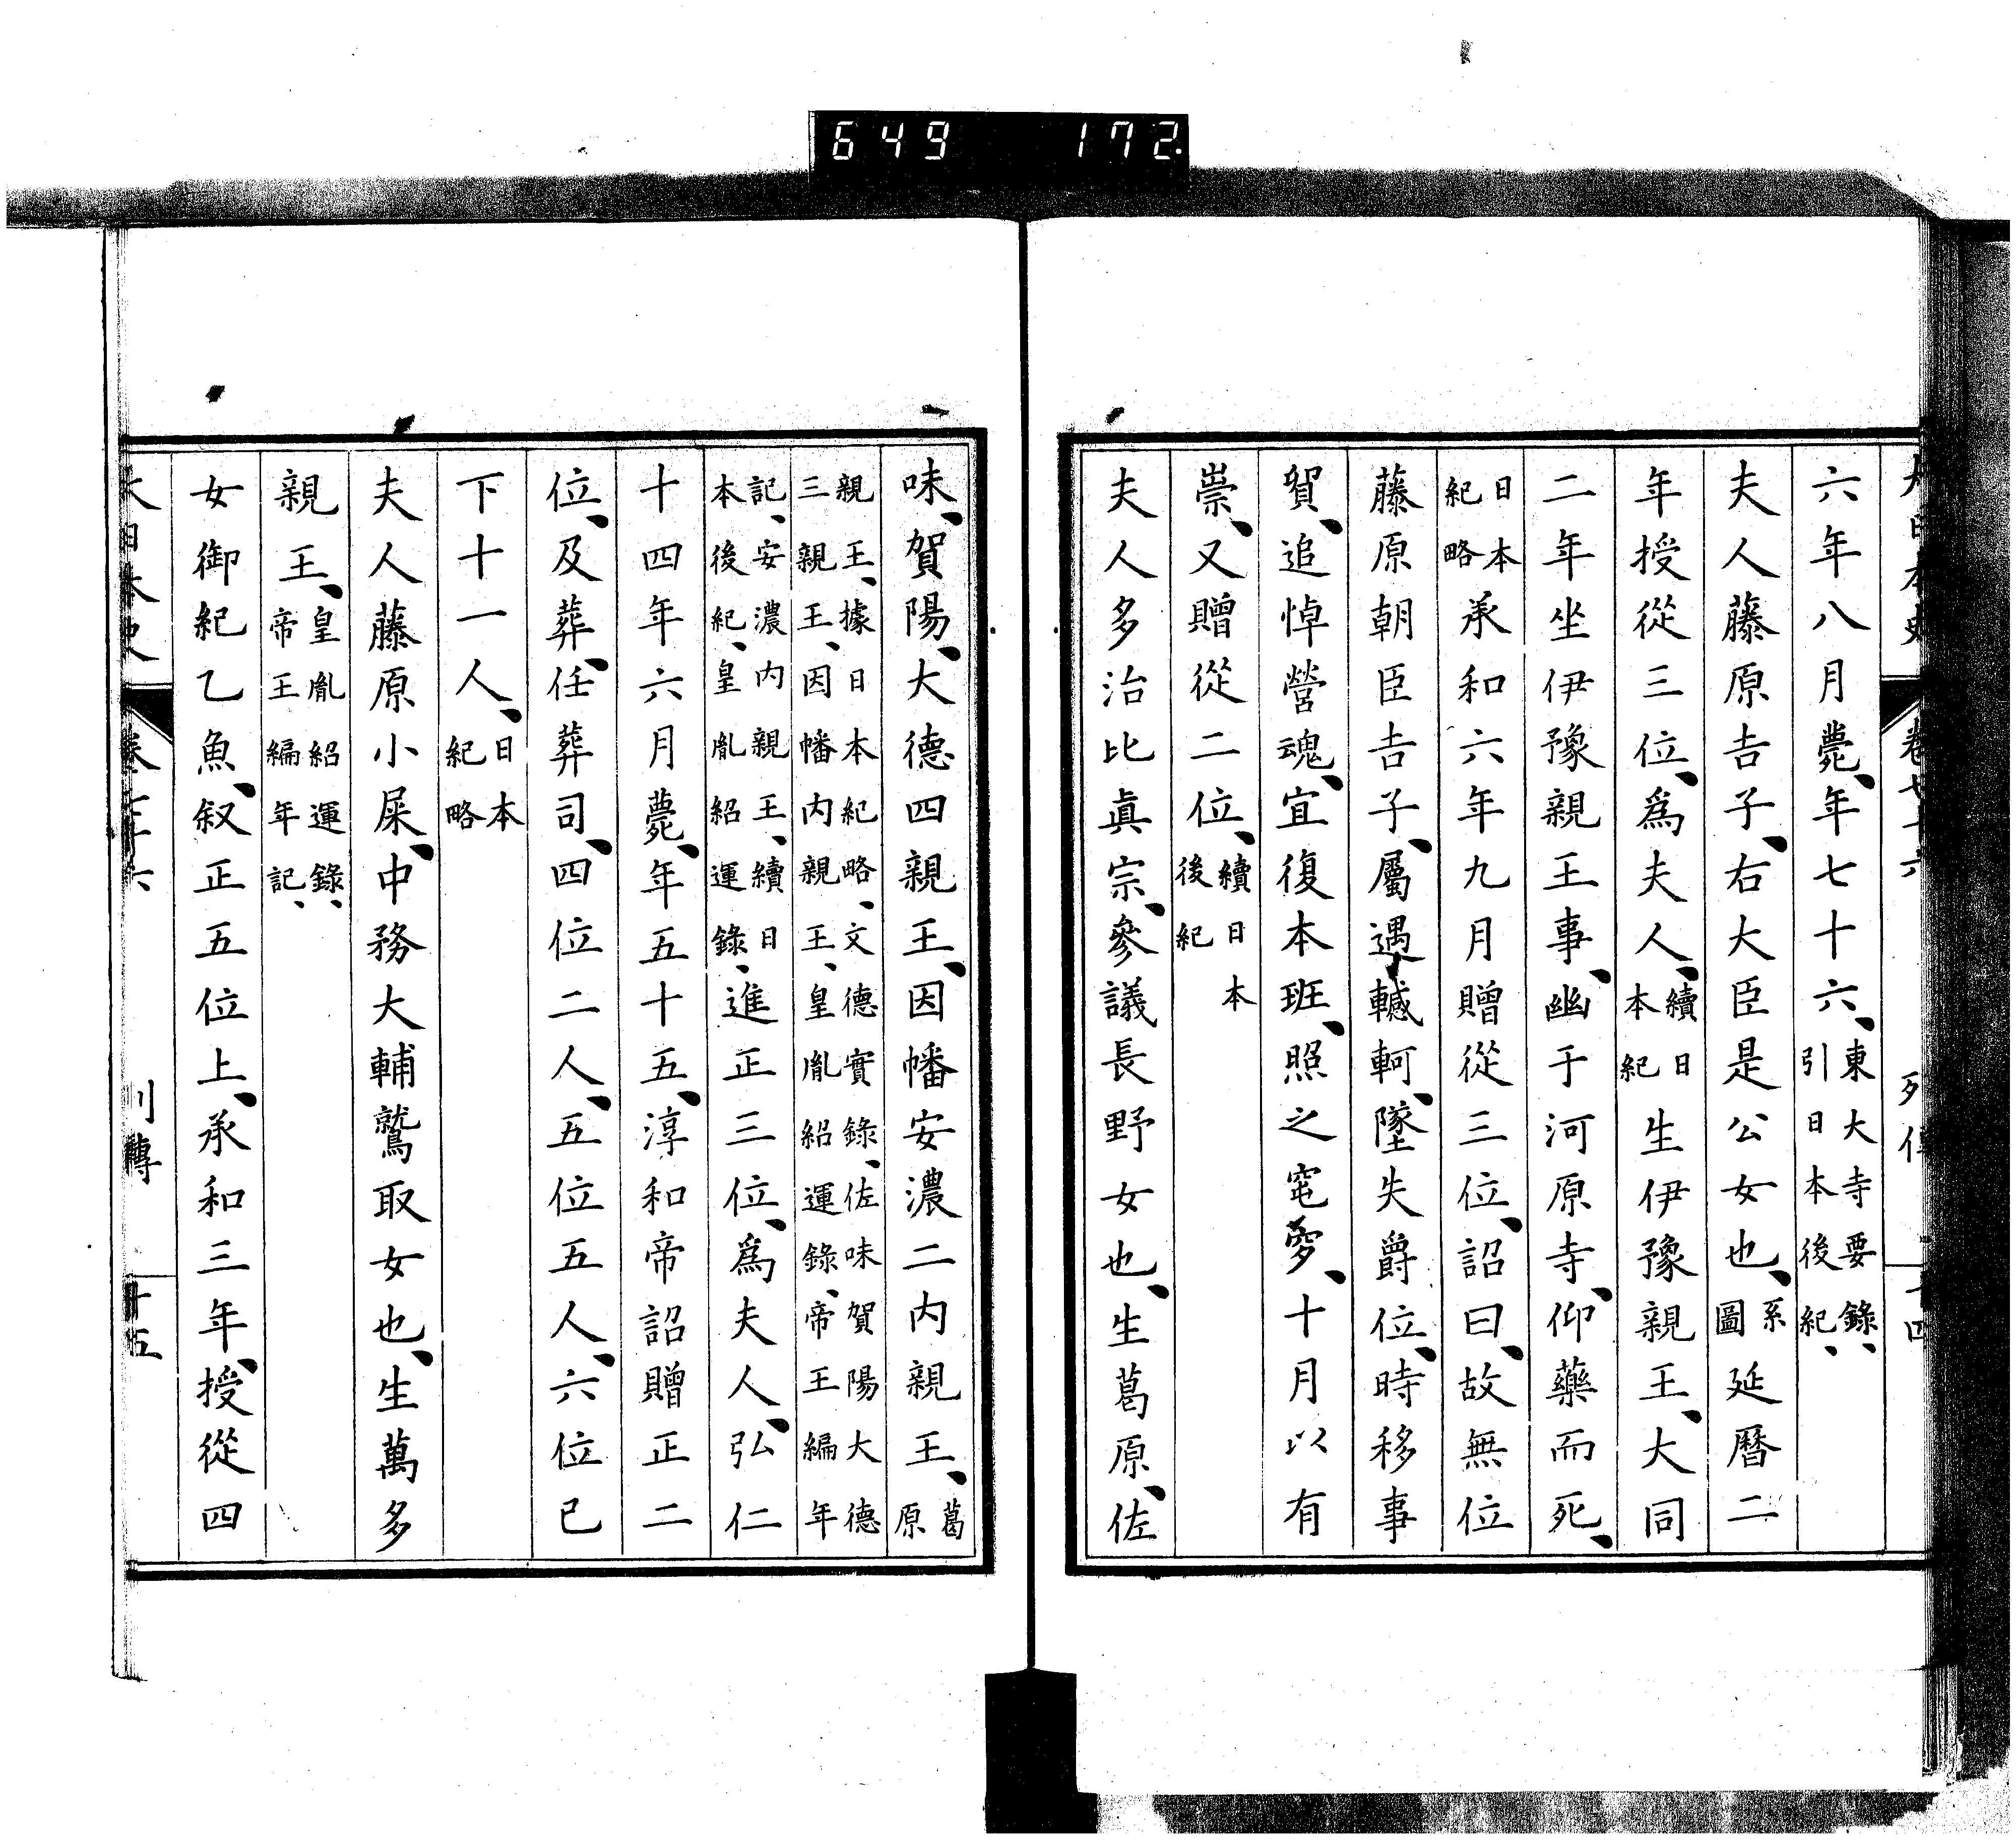 649 172
大日本史 卷七十六 列傳 十四
六年八月薨、年七十六、東大寺要錄、引日本後紀、
夫人藤原吉子、右大臣是公女也、系圖延曆二
年授從三位、爲夫人、續日本紀生伊豫親王、大同
二年坐伊豫親王事、幽于河原寺、仰藥而死、
日本紀略承和六年九月贈從三位、詔曰、故無位
藤原朝臣吉子、屬遇轗軻、墜失爵位、時移事
賀、追悼營魂、宜復本班、照之窀穸、十月以有
祟、又贈從二位、續日本後紀
夫人多治比眞宗、參議長野女也、生葛原、佐
味、賀陽、大德四親王、因幡安濃二内親王、葛原
親王、據日本紀略、文德實錄、佐味賀陽大德三親王、因幡内親王、皇胤紹運錄、帝王編年
記、安濃内親王、續日本後紀、皇胤紹運錄、進正三位、爲夫人、弘仁
十四年六月薨、年五十五、淳和帝詔贈正二
位、及葬、任葬司、四位二人、五位五人、六位已
下十一人、日本紀略
夫人藤原小屎、中務大輔鷲取女也、生萬多
親王、皇胤紹運錄、帝王編年記、
女御紀乙魚、叙正五位上、承和三年、授從四
大日本史 卷七十六 列傳 十五